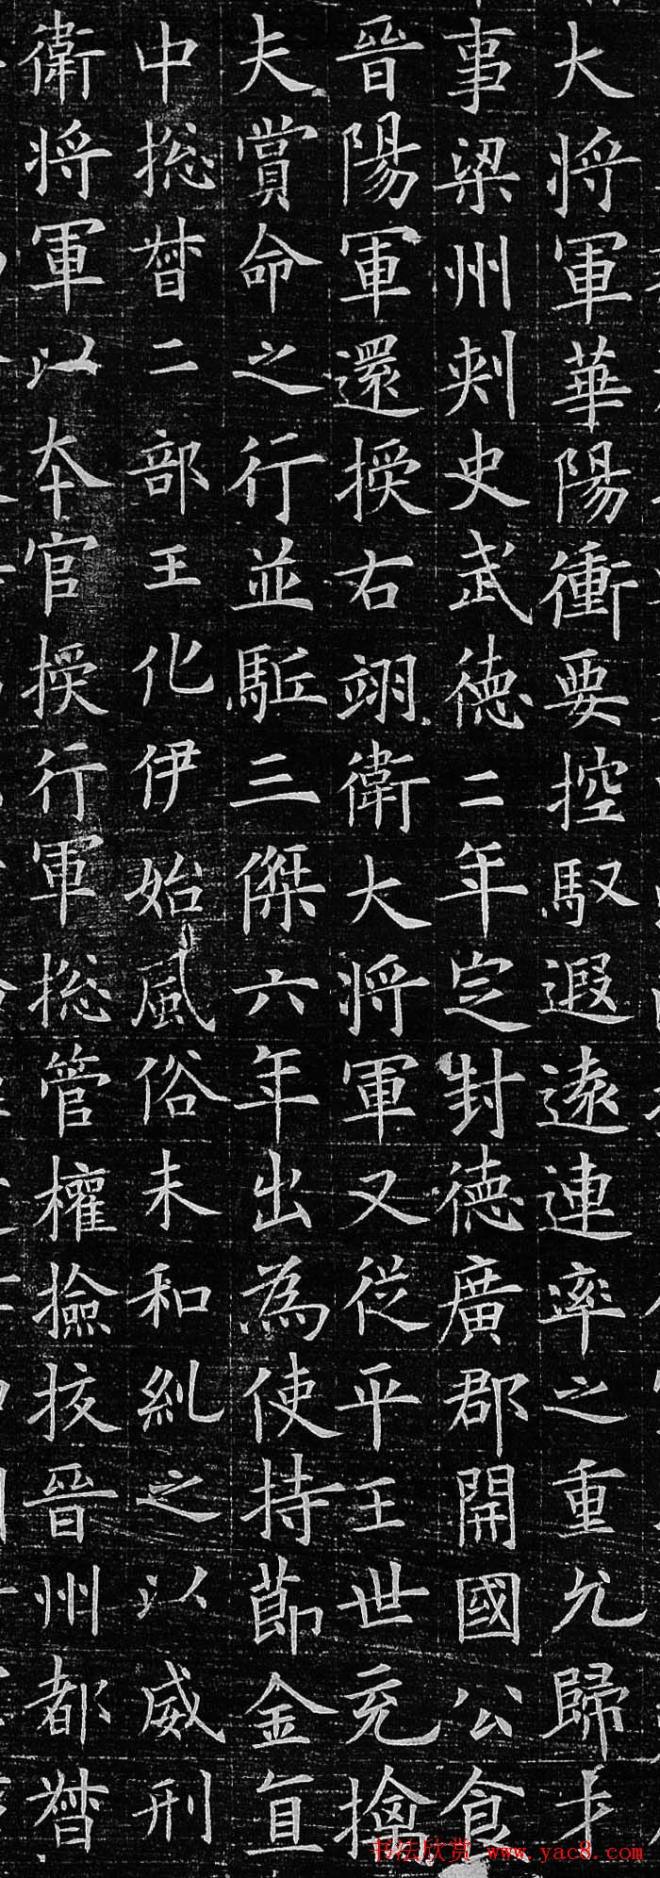 大將軍華陽衝要控馭遐遠連率之重允歸才
事梁州刺史武德二年定封德廣郡開國公食
晉陽軍還授右翊衛大將軍又從平王世充擒
夫賞命之行並駈三傑六年出為使持節金直
中捴督二部王化伊始風俗未和糺之以威刑
衛將軍以本官授行軍捴管權撿挍晉州都督
书法欣赏 www.yac8.com